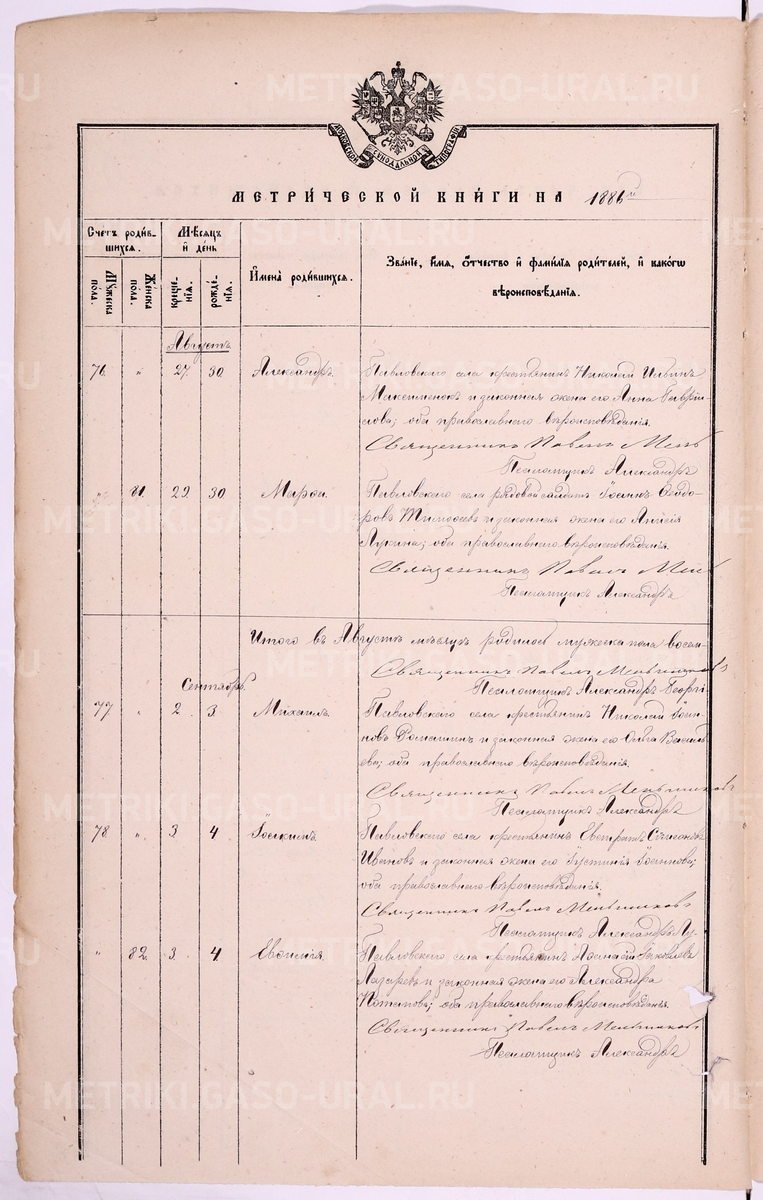 МОСКОВСКОЙ СѴНОДАЛЬНОЙ ТИПОГРАФІИ
МЕТРИ́ЧЕСКОЙ КНИ́ГИ НА 1886
Счетъ роди́вшихся.
Мѣсяцъ и де́нь
Имена̀ роди́вшихся.
Зва́нїе, и́мя, ѻ҆́тчество и фами́лїя роди́телей, и како́гѡ
вѣроисповѣ́данїя.
Му́жеска пола.
Же́нска пола.
креще́нїя.
рожде́нїя.
Августъ
76. " 27. 30 Александръ. Павловскаго села крестьянинъ Николай Ильинъ
и законная жена его Анна Гаврiилова; оба православнаго вѣроисповѣданія.
Священникъ Павелъ
Псаломщикъ Александръ
81. 29. 30 Марѳа. Павловскаго села рядовой солдатъ Іоаннъ Ѳеодоровъ
Тимоѳеевъ и законная жена его Анисія
Лукина; оба православнаго вѣроисповѣданія.
Священникъ Павелъ
Псаломщикъ Александръ
Итого въ Августѣ мѣсяцѣ родилось мужеска пола восемь
Священникъ Павелъ Меньшиковъ
Псаломщикъ Александръ Георгі
Сентябрь.
77. " 2. 3. Михаилъ. Павловскаго села крестьянинъ Николай Іоанновъ
и законная жена его Ольга Васильева;
оба православнаго вѣроисповѣданія.
Священникъ Павелъ Меньшиковъ
Псаломщикъ Александръ
78. " 3. 4. Іоакимъ. Павловскаго села крестьянинъ
Ивановъ и законная жена его Іустинія Іоаннова;
оба православнаго вѣроисповѣданія.
Священникъ Павелъ Меньшиковъ
Псаломщикъ Александръ
" 82. 3. 4 Евѳимія. Павловскаго села крестьянинъ Аѳанасій Яковлевъ
Лазаревъ и законная жена его Александра
Потапова; оба православнаго вѣроисповѣданія.
Священникъ Павелъ Меньшиковъ
Псаломщикъ Александръ
METRIKI.GASO-URAL.RU